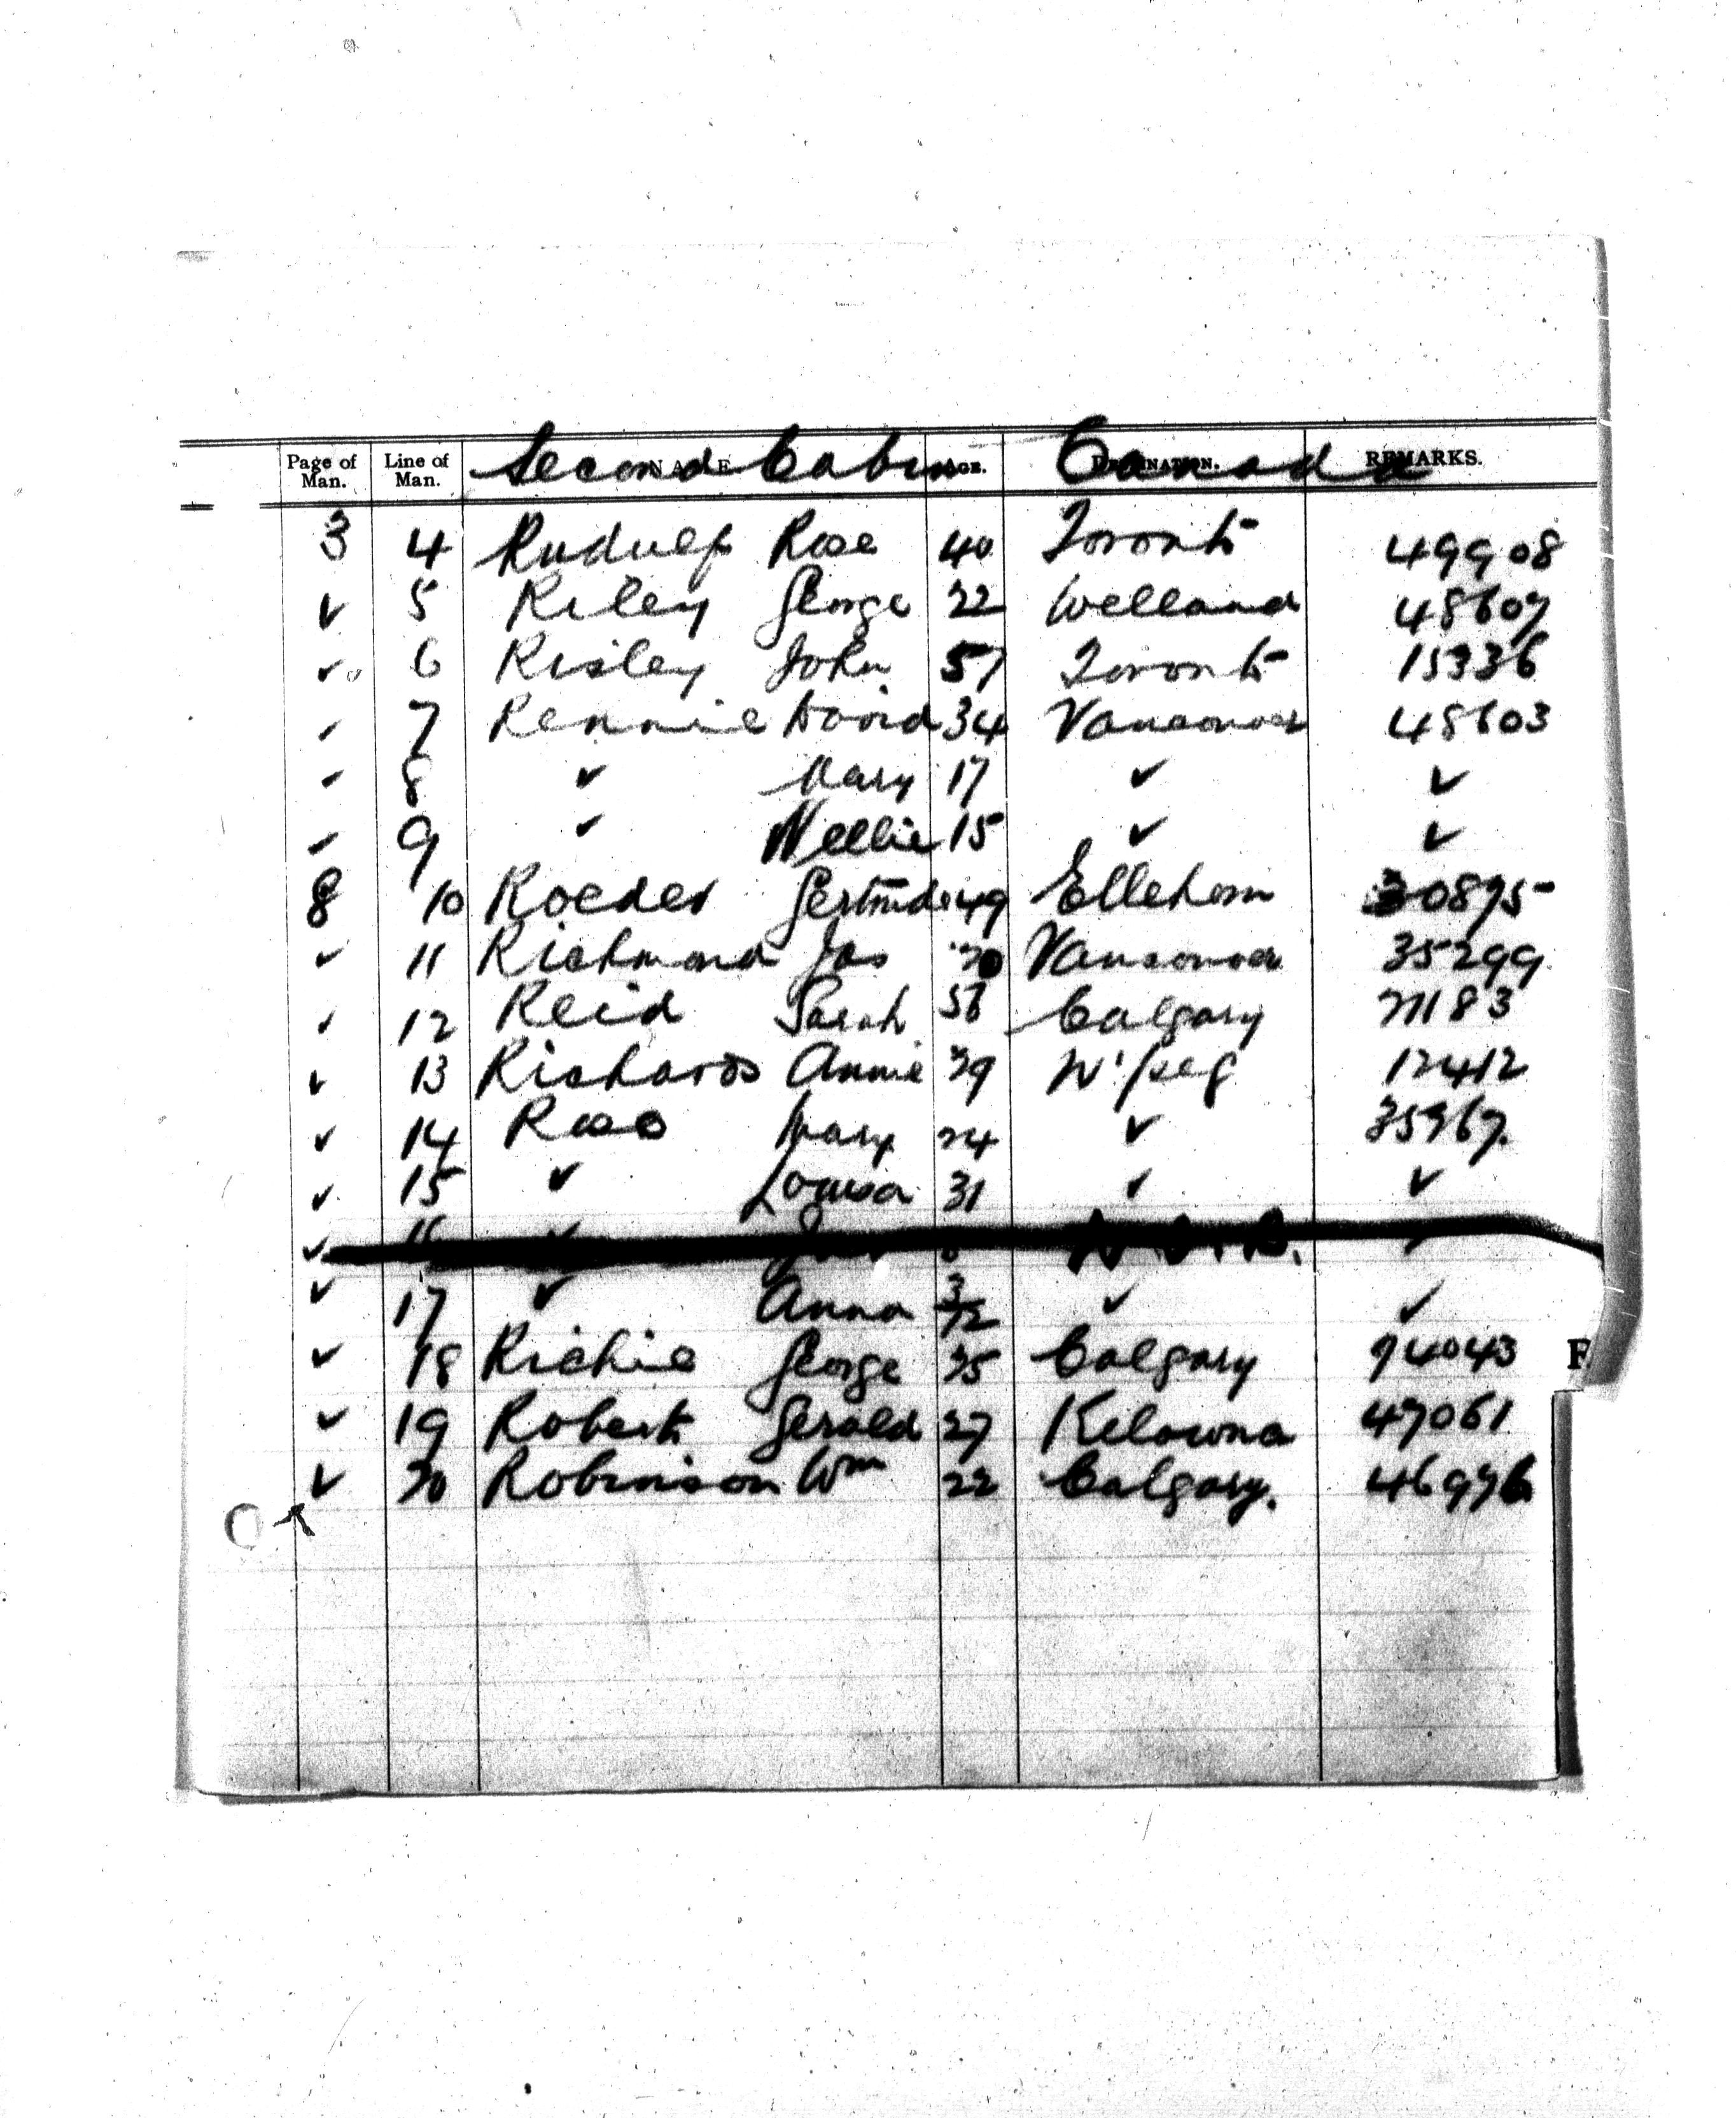 Page of Man. Line of Man. NAME Second Cabin AGE. DESTINATION. Canada REMARKS.
3 4 Rudulf Rose 40 Toronto 49908
✓ 5 Riley George 22 Welland 48607
✓ 6 Risley John 57 Toronto 15336
✓ 7 Rennie David 34 Vancouver 48603
✓ 8 ✓ Mary 17 ✓ ✓
✓ 9 ✓ Nellie 15 ✓ ✓
8 10 Roeder Gertrude 49 30875
✓ 11 Richmond Jas Vancouver 35299
✓ 12 Reid Sarah Calgary
✓ 13 Richards Annie 29 W'peg 12412
✓ 14 Mary 24 ✓ 35367
✓ 15 ✓ Louisa 31 ✓ ✓
✓ 16 ✓
✓ 17 ✓ Anna 3/12 ✓ ✓
✓ 18 Richie George 25 Calgary 24043
✓ 19 Robert Gerald 27 Kelowna 47061
✓ 20 Robinson Wm 22 Calgary. 46976